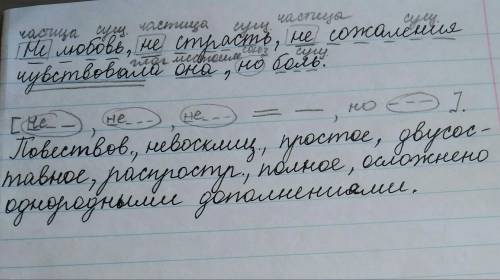 частица сущ. частица сущ. частица сущ.
Не любовь, не страсть, не сожаления
глаг местоим союз сущ
чувствовала она, но боль.
[не, не, не = —, но].
Повествов., невосклиц., простое, двусос-
тавное, распростр., полное, осложнено
однородными дополнениями.